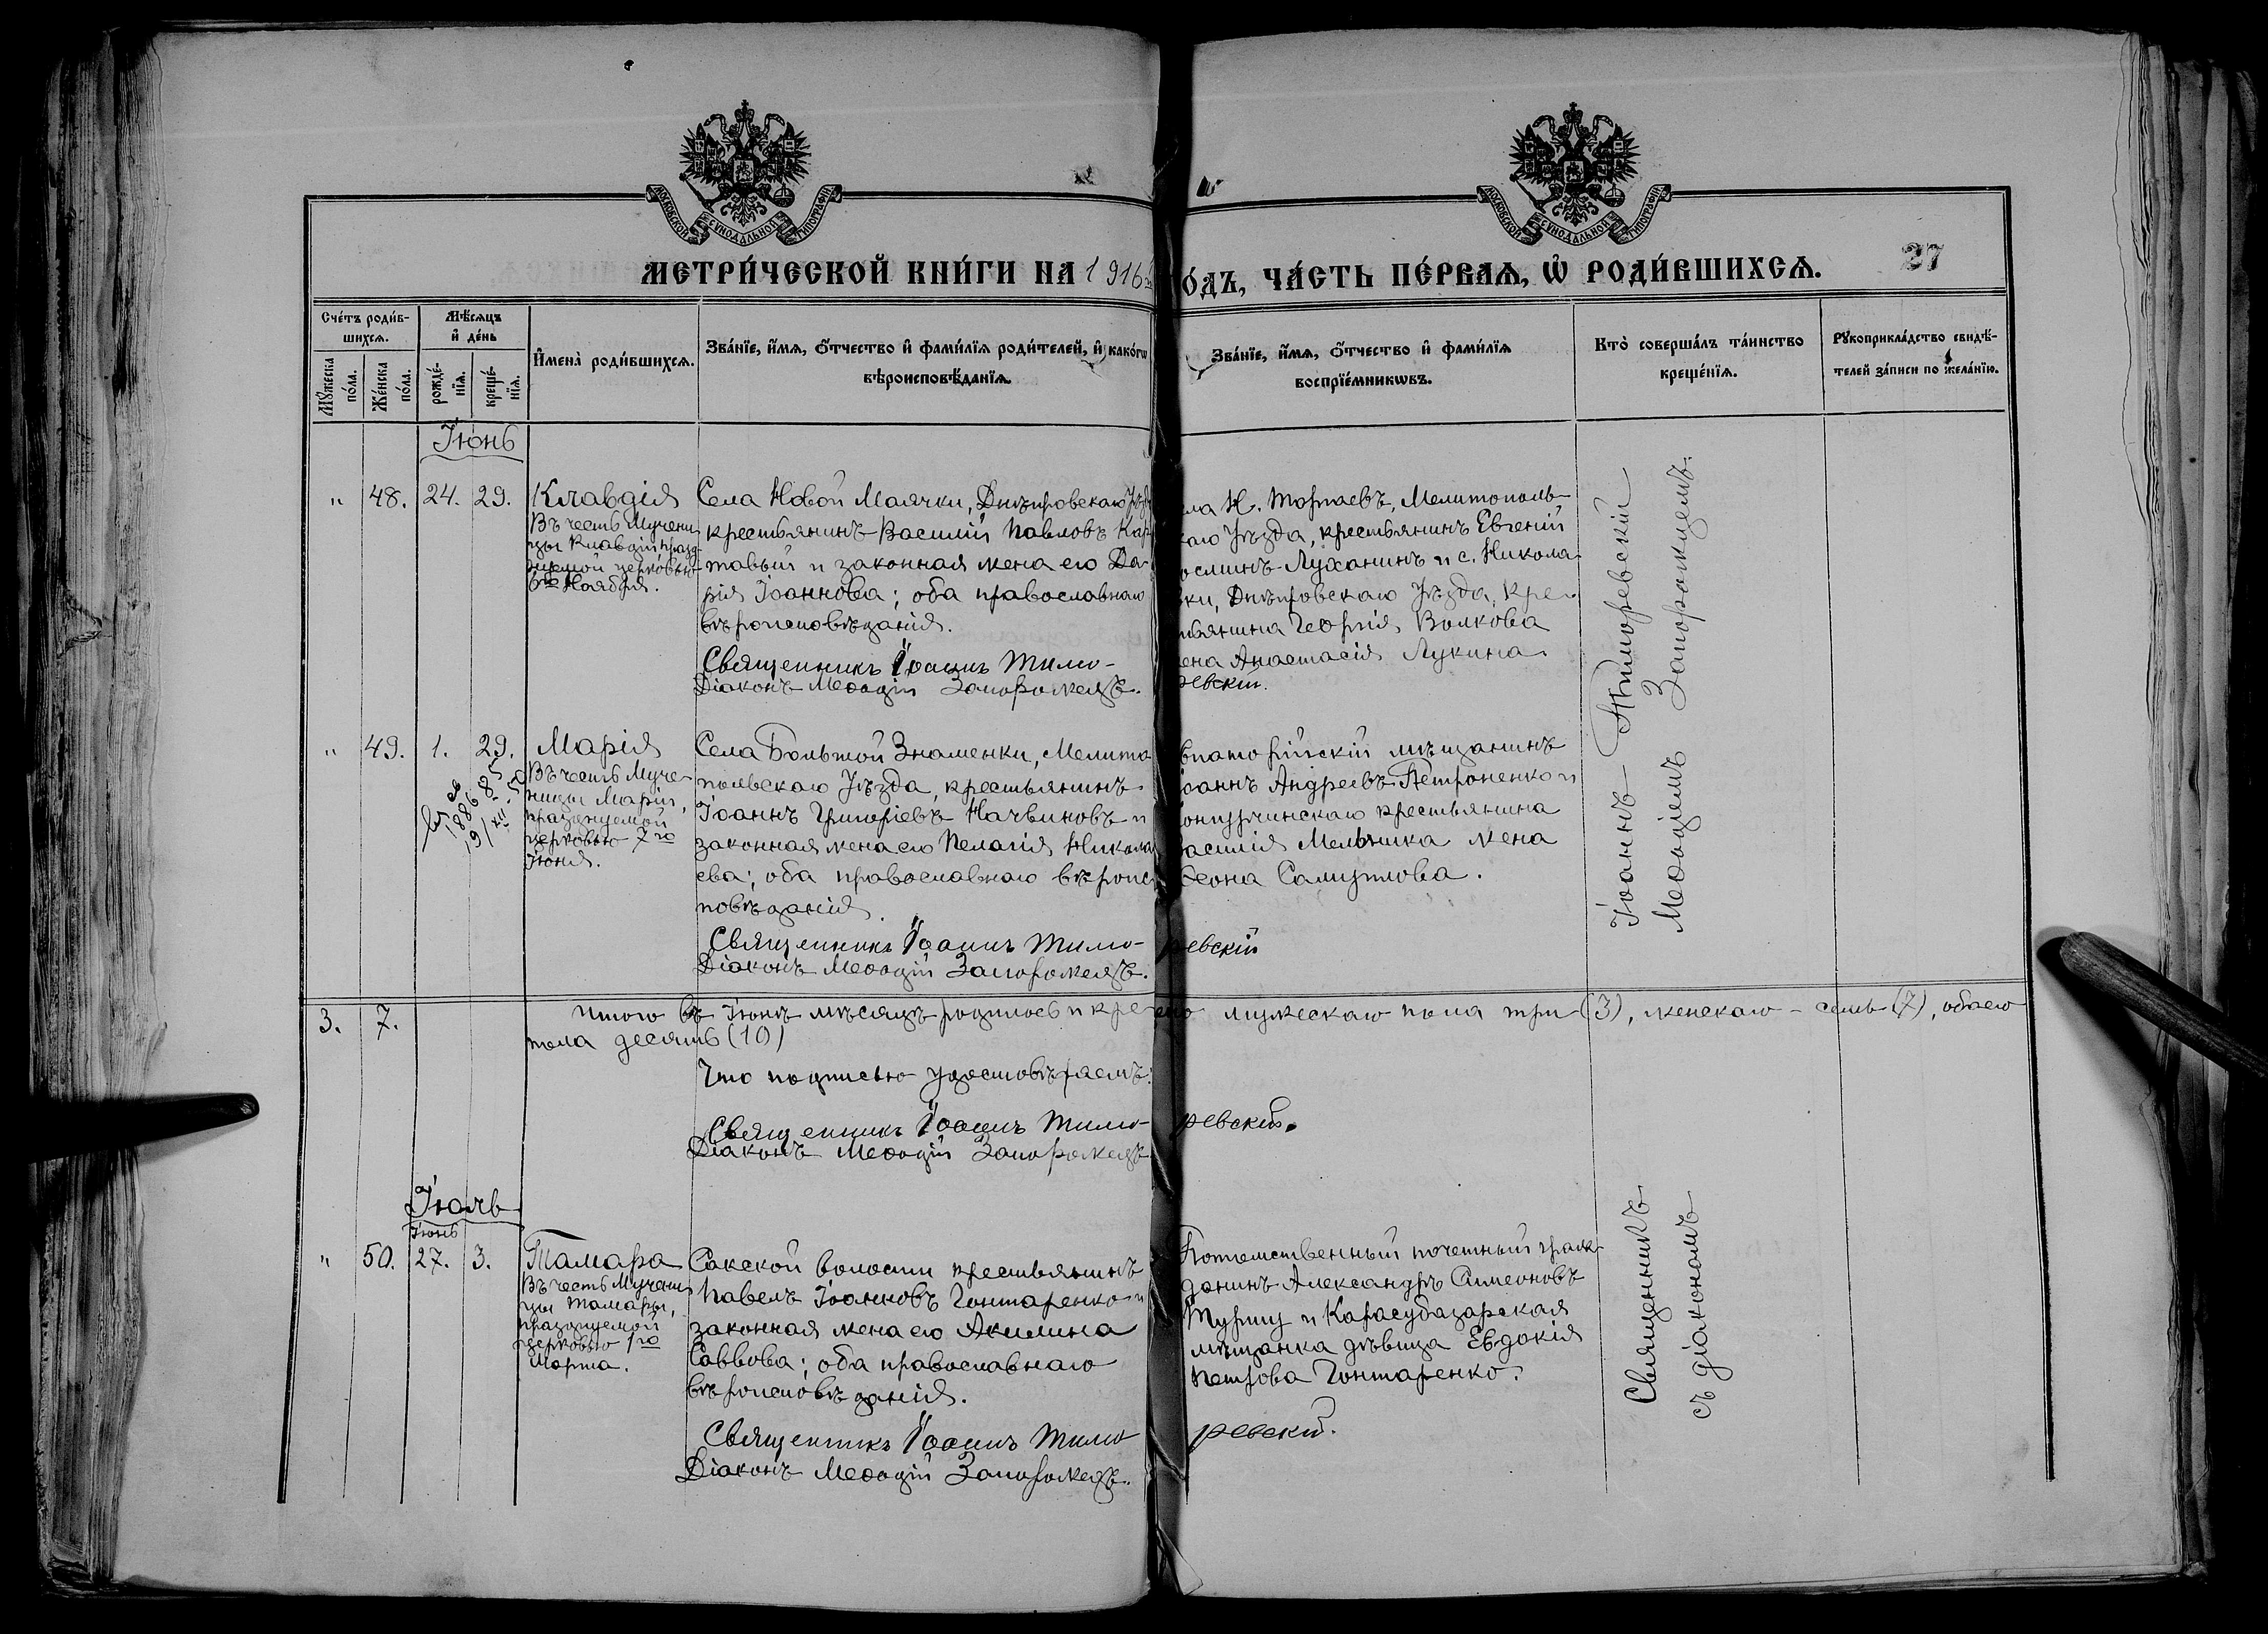 МОСКОВСКОЙ СѴНОДАЛЬНОЙ ТИПОГРАФІИ
МОСКОВСКОЙ СѴНОДАЛЬНОЙ ТИПОГРАФІИ
27
МЕТРИ́ЧЕСКОЙ КНИ́ГИ НА 1916
О́ДЪ, ЧА́СТЬ ПЕ́РВАѦ, Ѡ҆ РОДИ́ВШИХСѦ.
Сче́тъ роди́в-
шихсѧ.
Мꙋ́жеска по́ла.
Же́нска по́ла.
Мѣ́сѧцъ
и҆ де́нь
рожде́-
нїѧ.
креще́-
нїѧ.
И҆мена̀ роди́вшихсѧ.
Зва́нїе, и҆́мѧ, ѻ҆́тчество и҆ фами́лїѧ роди́телей, и҆ како́гѡ
вѣроисповѣ́данїѧ.
Зва́нїе, и҆́мѧ, ѻ҆́тчество и҆ фами́лїѧ
воспрїе́мникѡвъ.
Кто̀ соверша́лъ та́инство
креще́нїѧ.
Рꙋкоприкла́дство свидѣ́-
телей за́писи по жела́нїю.
Іюнь
" 48. 24. 29.
Клавдія
Въ честь Мучени-
цы Клавдіи, празд-
нуемой церковью
6го Ноября.
Села Новой Маячки, Днѣпровскаго Уѣзда
крестьянинъ Василій Павловъ Кар-
тавый и законная жена его Да-
рія Іоаннова; оба православнаго
вѣроисповѣданія.
Священникъ Іоаннъ Тимо-
Діаконъ Меѳодій Запорожецъ.
ла Н. Торгаевъ, Мелитополь-
каго Уѣзда, крестьянинъ Евгеній
Луханинъ и с. Никола-
ки, Днѣпровскаго Уѣзда, кре-
тьянина Георгія Волкова
ена Анастасія Лукина
ревскій.
Іоаннъ Тиморевскій
Меѳодіемъ Запорожцемъ.
" 49. 1. 29.
Марія
Въ честь Муче-
ницы Маріи,
празднуемой
церковью 7го
Іюня.
Села Большой Знаменки, Мелито
польскаго Уѣзда, крестьянинъ
Іоаннъ Григоріевъ Начвиновъ и
законная жена его Пелагія Никола
ева; оба православнаго вѣроис
повѣданія.
Священникъ Іоаннъ Тимо-
Діаконъ Меѳодій Запорожецъ.
впаторійскій мѣщанинъ
оаннъ Андреевъ Петроненко и
крестьянина
асилія Мельника жена
Самуилова.
ревскій
3. 7.
Итого въ Іюнѣ мѣсяцѣ родилось и кре
ено мужескаго пола три (3), женскаго - семь (7), обоего
пола десять (10)
Что подписью удостовѣряемъ:
Священникъ Іоаннъ Тимо-
Діаконъ Меѳодій Запорожецъ
ревскій.
Іюль
Іюнь
" 50. 27. 3.
Тамара
Въ честь Мучени
цы Тамары,
празднуемой
церковью 1го
Марта.
Сакской волости крестьянинъ
Павелъ Іоанновъ Гонтаренко и
законная жена его Акилина
Саввова; оба православнаго
вѣроисповѣданія.
Священникъ Іоаннъ Тимо
Діаконъ Меѳодій Запорожецъ.
Потомственный почетный граж-
данинъ Александръ Симеоновъ
и Карасубазарская
мѣщанка дѣвица Евдокія
Петрова Гонтаренко.
ревскій.
Священникъ
съ діакономъ